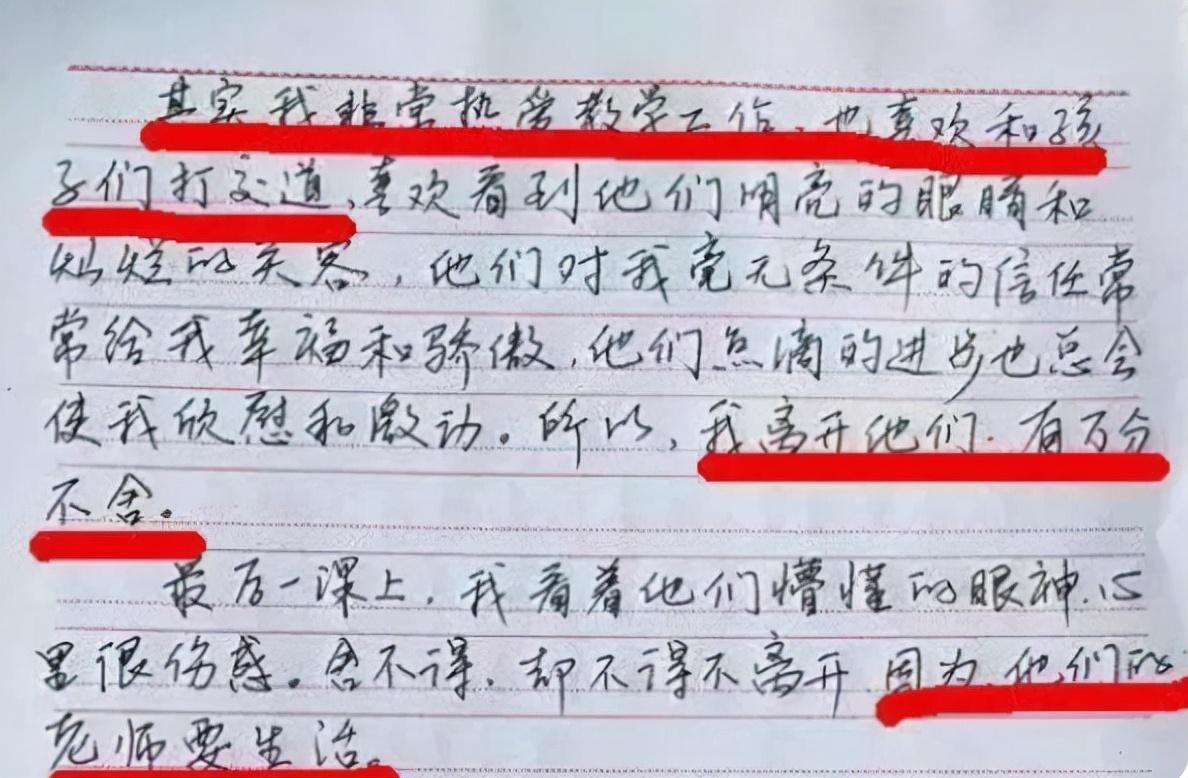 其实我非常热爱教学工作、也喜欢和孩
子们打交道,喜欢看到他们明亮的眼睛和
灿烂的笑容,他们对我毫无条件的信任常
常给我幸福和骄傲,他们点滴的进步也总会
使我欣慰和激动。所以,我离开他们.有万分
不舍.
最后一课上,我看着他们懵懂的眼神.心
里很伤感。舍不得.却不得不离开.因为.他们的
老师要生活。